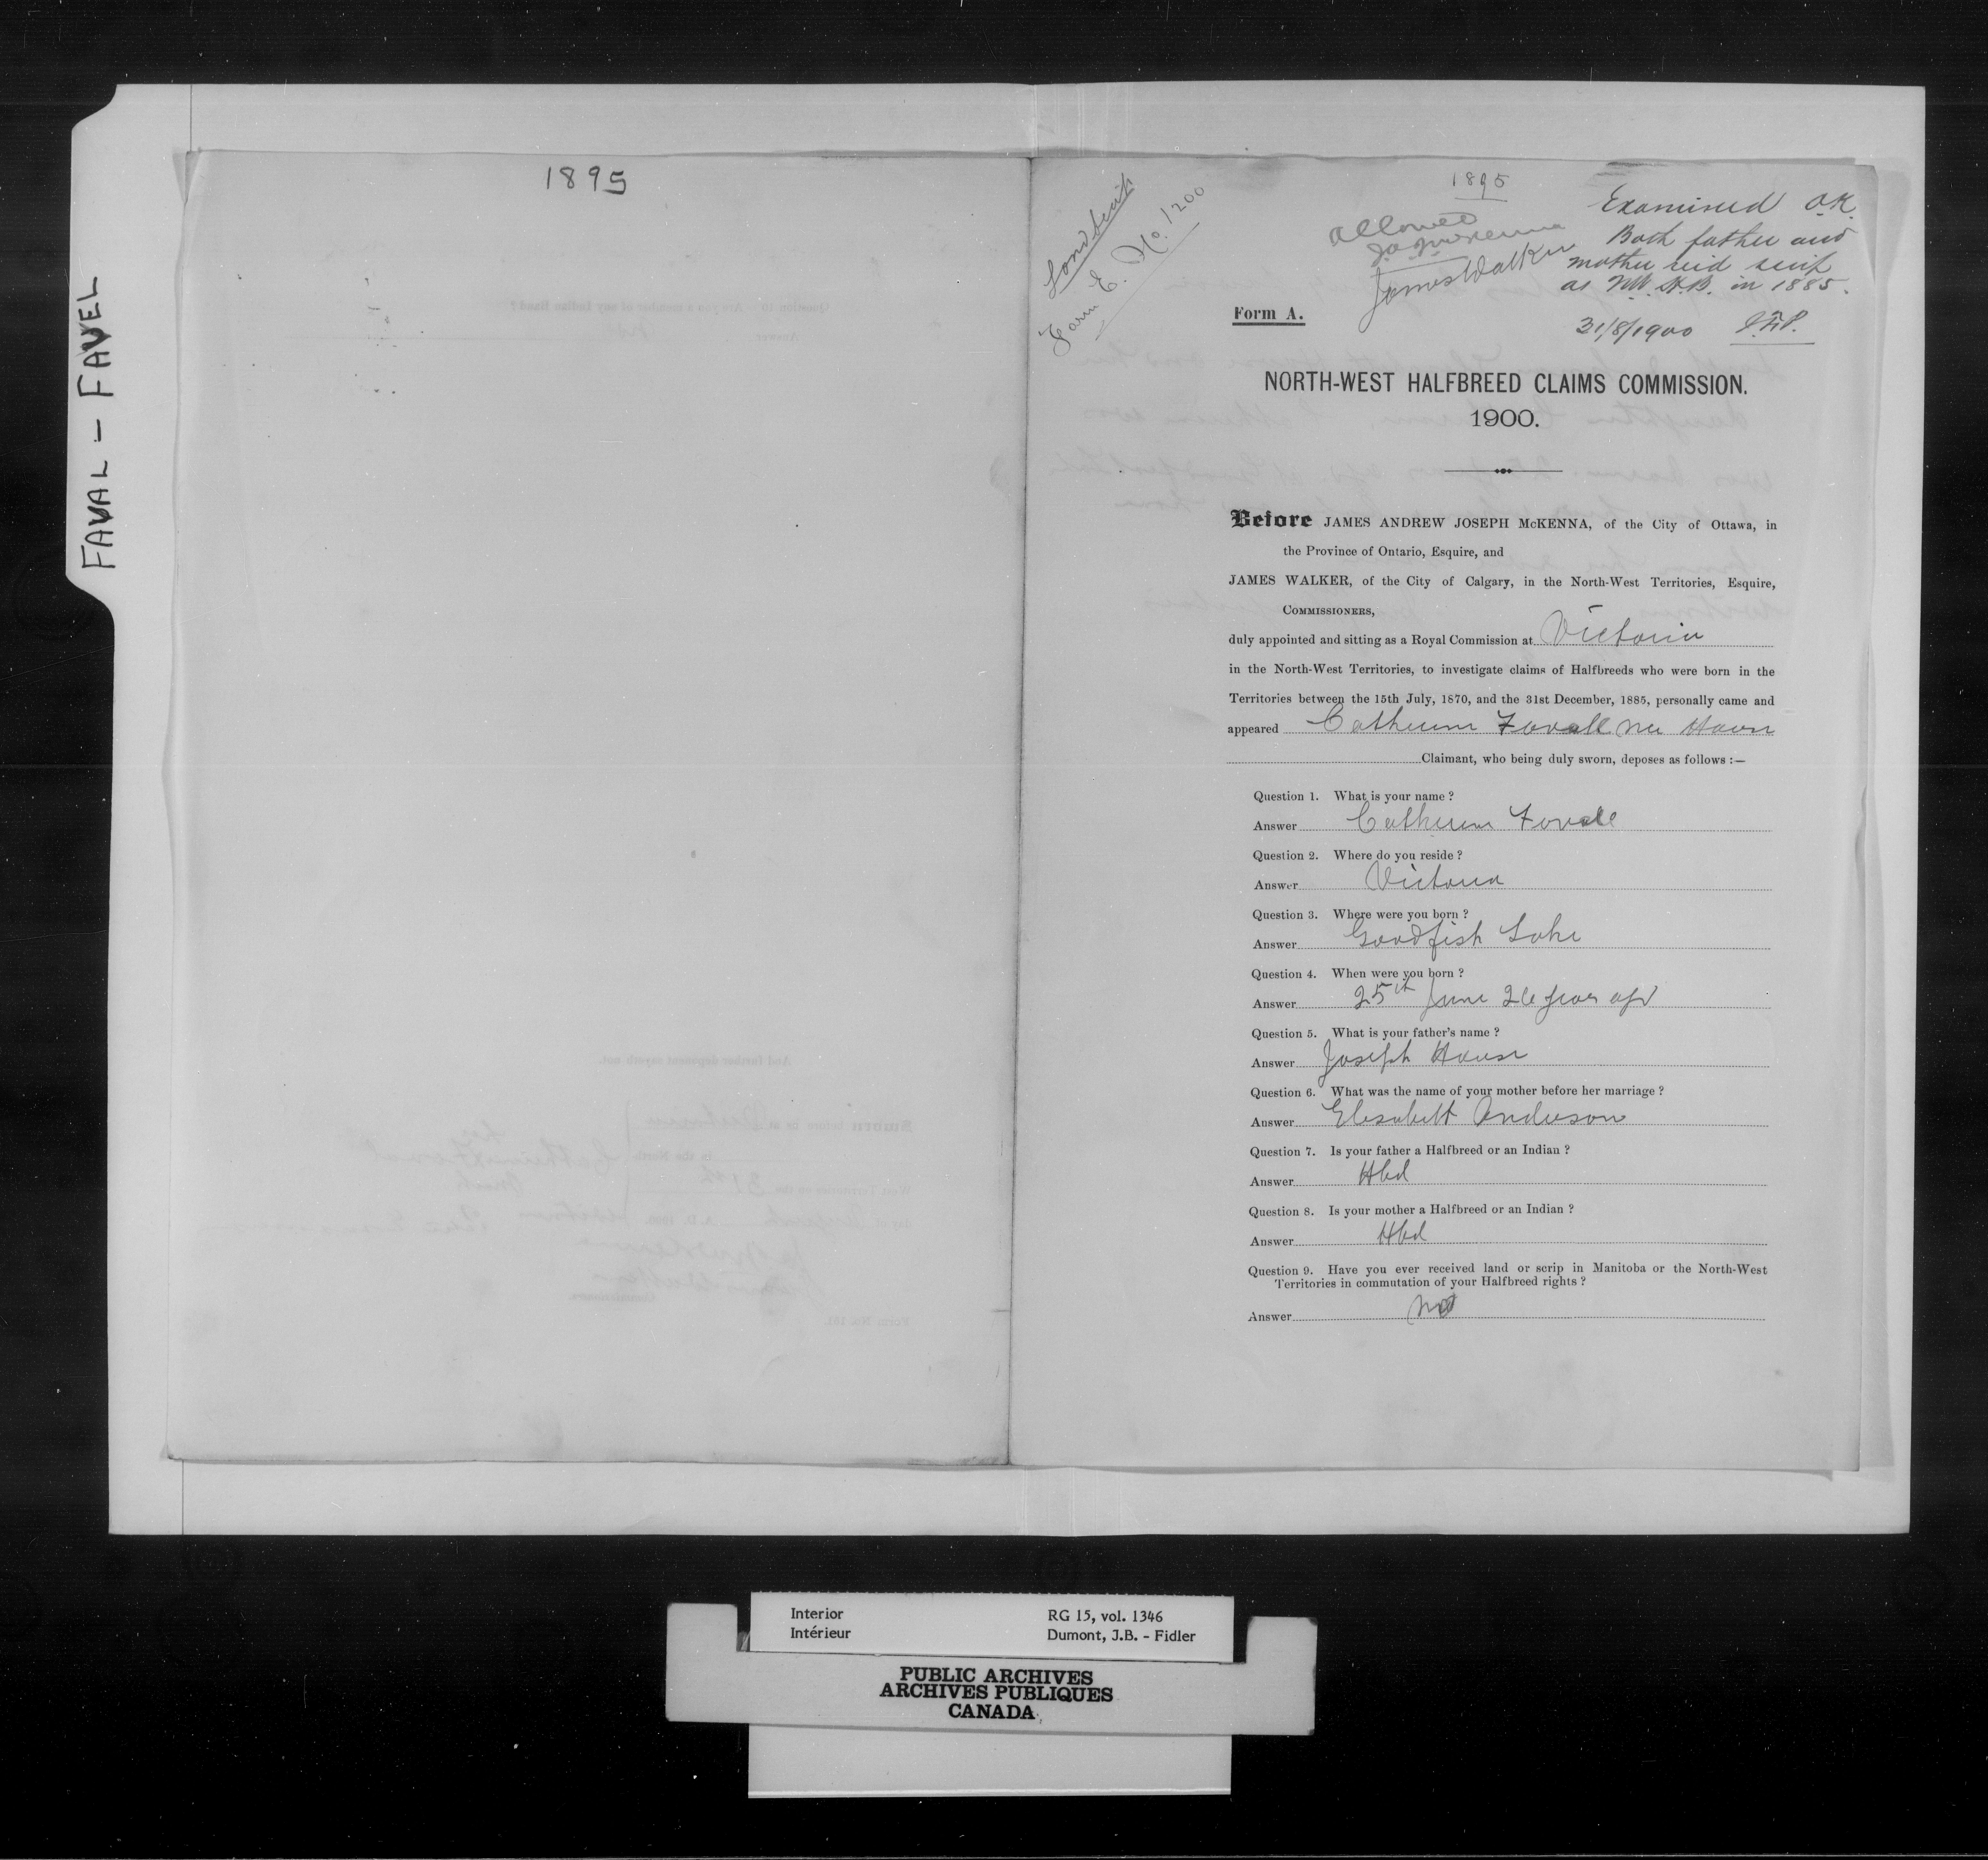 FAVAL - FAVEL
1895
1895
Land Scrip
Form E. No. 1200
Allowed
J.A.J. McKenna
James Walker
Examined O.K.
Both father and
mother recd scrip
as NW. H.B. in 1885.
31/8/1900
Form A.
NORTH-WEST HALFBREED CLAIMS COMMISSION.
1900.
Before JAMES ANDREW JOSEPH McKENNA, of the City of Ottawa, in
the Province of Ontario, Esquire, and
JAMES WALKER, of the City of Calgary, in the North-West Territories, Esquire,
COMMISSIONERS,
duly appointed and sitting as a Royal Commission at Victoria
in the North-West Territories, to investigate claims of Halfbreeds who were born in the
Territories between the 15th July, 1870, and the 31st December, 1885, personally came and
appeared Catherine Favall nee House
Claimant, who being duly sworn, deposes as follows :—
Question 1. What is your name ?
Answer Catherine Favall
Question 2. Where do you reside ?
Answer Victoria
Question 3. Where were you born ?
Answer Goodfish Lake
Question 4. When were you born ?
Answer 25th June 26 years ago
Question 5. What is your father's name ?
Answer Joseph House
Question 6. What was the name of your mother before her marriage ?
Answer Elisabett Anderson
Question 7. Is your father a Halfbreed or an Indian ?
Answer Hbd
Question 8. Is your mother a Halfbreed or an Indian ?
Answer Hbd
Question 9. Have you ever received land or scrip in Manitoba or the North-West
Territories in commutation of your Halfbreed rights ?
Answer No
Interior RG 15, vol. 1346
Intérieur Dumont, J.B. - Fidler
PUBLIC ARCHIVES
ARCHIVES PUBLIQUES
CANADA